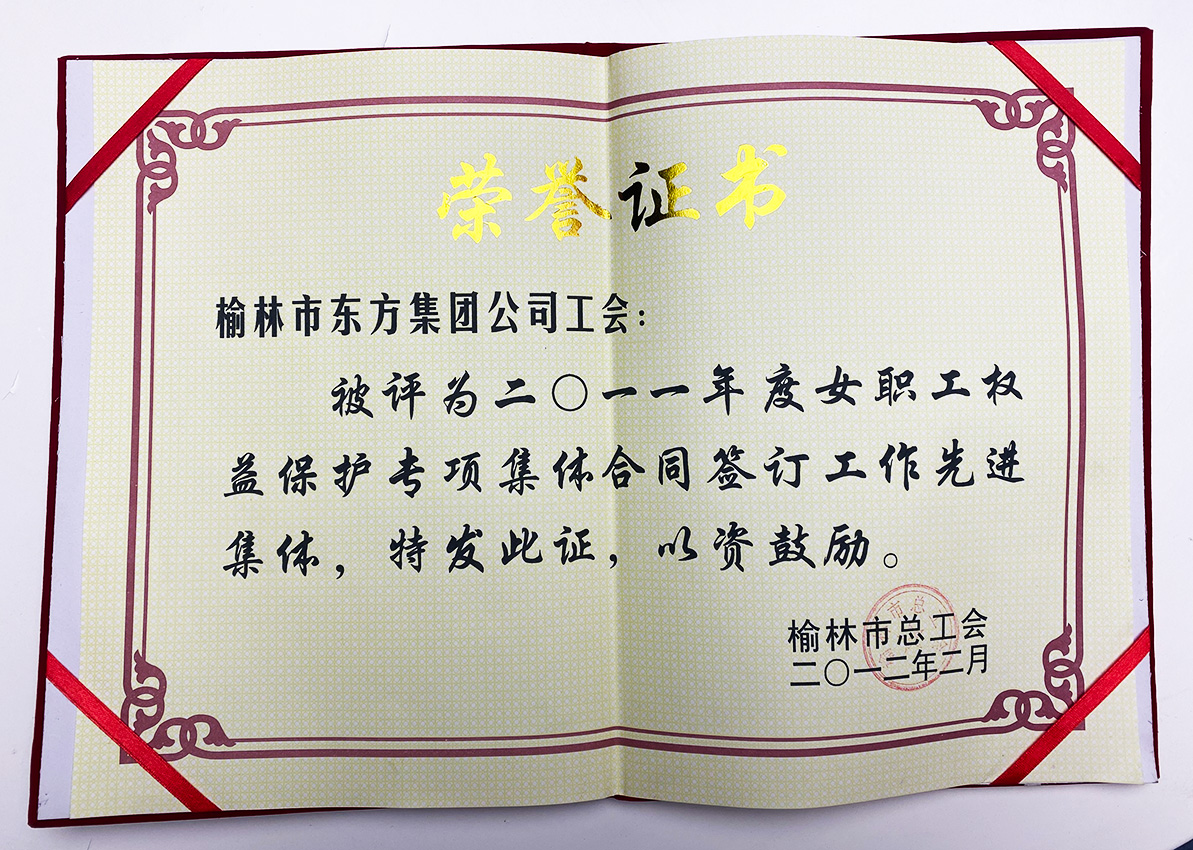 荣誉证书
榆林市东方集团公司工会：
被评为二〇一一年度女职工权
益保护专项集体合同签订工作先进
集体，特发此证，以资鼓励。
榆林市总工会
二〇一二年二月